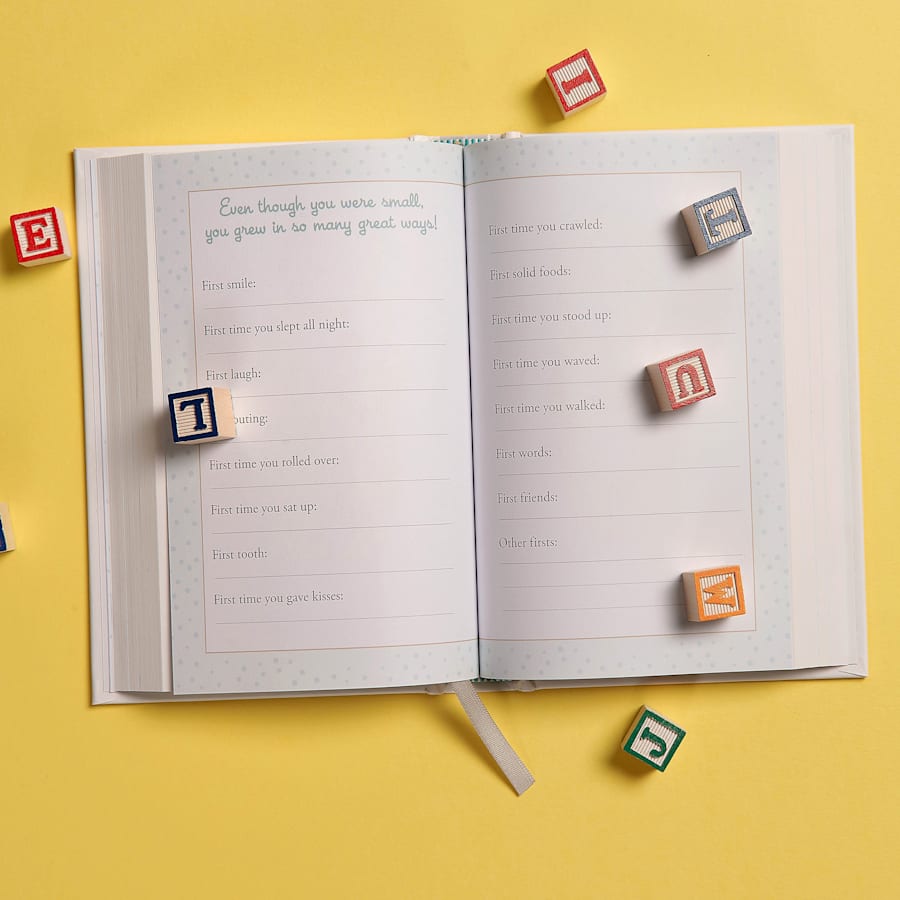 Even though you were small,
you grew in so many great ways!
First smile:
First time you slept all night:
First laugh:
First time you rolled over:
First time you sat up:
First tooth:
First time you gave kisses:
First time you crawled:
First solid foods:
First time you stood up:
First time you waved:
First time you walked:
First words:
First friends:
Other firsts:
I
E
L
U
M
J